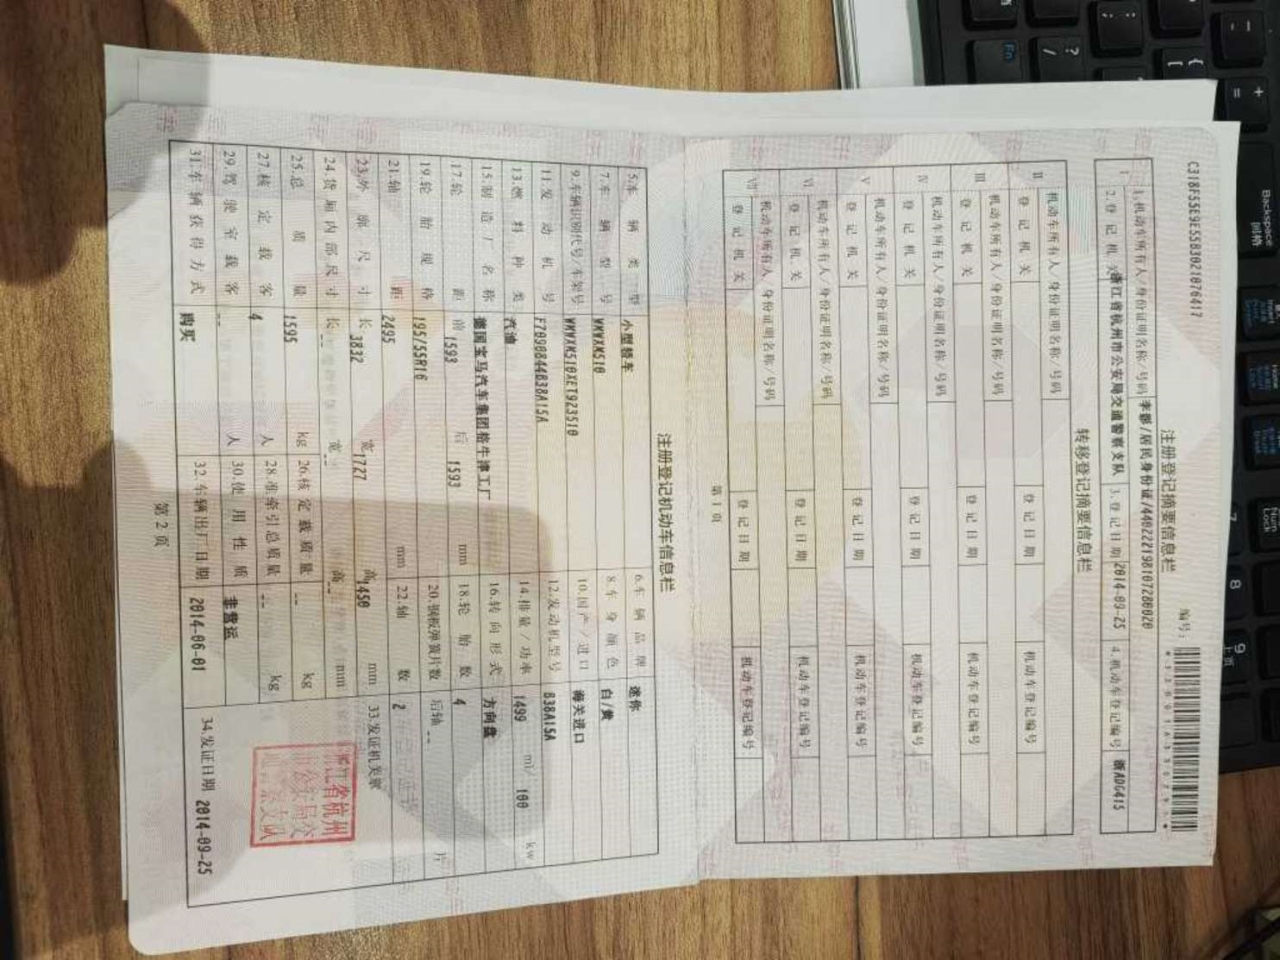 C318F55E9E5583021076417
编号：
注册登记摘要信息栏
I
1.机动车所有人/身份证明名称/号码 李郡/居民身份证/440222198107280020
2.登记机关 浙江省杭州市公安局交通警察支队 3.登记日期 2014-09-25 4.机动车登记编号 浙ADG415
转移登记摘要信息栏
II 机动车所有人/身份证明名称/号码
登记机关 登记日期 机动车登记编号
III 机动车所有人/身份证明名称/号码
登记机关 登记日期 机动车登记编号
IV 机动车所有人/身份证明名称/号码
登记机关 登记日期 机动车登记编号
V 机动车所有人/身份证明名称/号码
登记机关 登记日期 机动车登记编号
VI 机动车所有人/身份证明名称/号码
登记机关 登记日期 机动车登记编号
VII 机动车所有人/身份证明名称/号码
登记机关 登记日期 机动车登记编号
第1页
注册登记机动车信息栏
5.车辆类型 小型轿车 6.车辆品牌 迷你
7.车辆型号 WMWXM510 8.车身颜色 白/黄
9.车辆识别代号/车架号 WMWXM510XET923510 10.国产/进口 海关进口
11.发动机号 F7090844B38A15A 12.发动机型号 B38A15A
13.燃料种类 汽油 14.排量/功率 1499 ml/ 100 kw
15.制造厂名称 德国宝马汽车集团格牛津工厂 16.转向形式 方向盘
17.轮距 前 1593 后 1593 mm 18.轮胎数 4
19.轮胎规格 195/55R16 20.钢板弹簧片数 后轴 -- 片
21.轴距 2495 mm 22.轴数 2
23.外廓尺寸 长 3832 宽 1727 高 1450 mm 33.发证机关章
24.货厢内部尺寸 长 -- 宽 -- 高 -- mm
25.总质量 1595 kg 26.核定载质量 -- kg
27.核定载客 4 人 28.准牵引总质量 -- kg
29.驾驶室载客 -- 人 30.使用性质 非营运
31.车辆获得方式 购买 32.车辆出厂日期 2014-06-01 34.发证日期 2014-09-25
浙江省杭州
市公安局交
通警察支队
第2页
Backspace
Fn